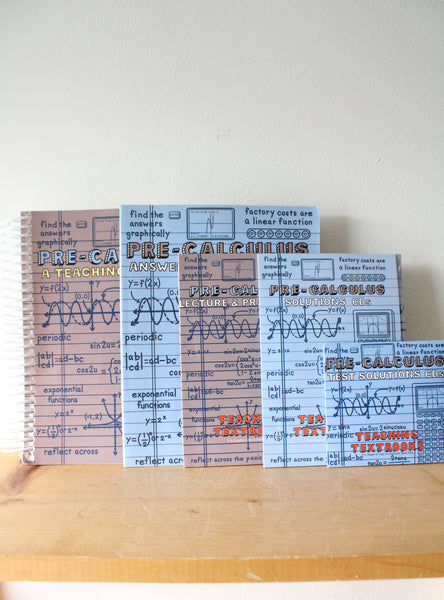 find the
answers
graphically
PRE-CAL
A TEACHING
y=f(2x)
(0,0)
periodic
sin2u=2
cos2u=
|ab|
|cd|=ad-bc
exponential
functions
y=2ˣ
(-1,2)
y=(½)ˣ or 2⁻ˣ
reflect across
find the
answers
graphically
factory costs are
a linear function
PRE-CALCULUS
ANSWE
y=f(2x)
periodic
|ab|
|cd|=ad-bc
exponential
functions
y=2ˣ
y=(½)ˣ or 2⁻ˣ
reflect across
find the
answers
graphically
PRE-CALCUL
LECTURE & PRA
y=f(2x)
(0,0)
y=sinx
sin2u=2sinu
periodic
cos2u=
|ab|
|cd|=ad-bc
tan2u=
exponential
functions
y=2ˣ
y=(½)ˣ or 2⁻ˣ
TEACHING
TEXTBO
reflect across the y-axis
find the
answers
graphically
factory costs are
a linear function
PRE-CALCULUS
SOLUTIONS CDS
y=f(2x)
(0,0)
y=f(x)
y=sinx
sin2u=2sinucosu
periodic
cos2u=
|ab|
|cd|=ad-bc
tan2u=
exponential
functions
y=2ˣ
y=(½)ˣ or 2⁻ˣ
reflect across the
find the
answers
factory costs are
a linear function
PRE-CALCULUS
TEST SOLUTIONS CDS
y=f(2x)
(0,0)
y=f(x)
y=sinx
sin2u=2sinucosu
periodic
TEACHING
TEXTBOOKS
|ab|
|cd|=ad-bc
tan2u=